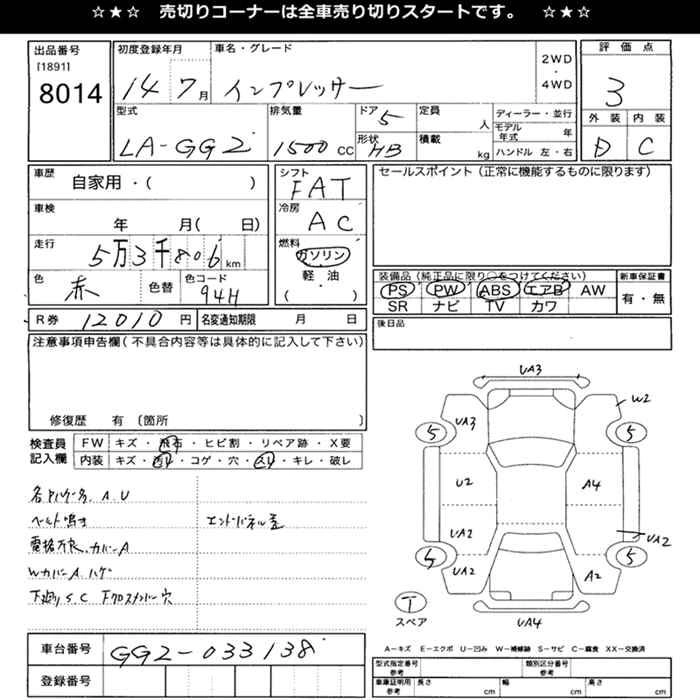 ☆★☆ 売切りコーナーは全車売り切りスタートです。 ☆★☆
出品番号
[1891]
8014
初度登録年月
14 7月
車名・グレード
インプレッサー
2WD
・
4WD
評価点
3
型式
LA-GG2
排気量
1500 CC
ドア
5
形状
HB
定員
人
積載
kg
ディーラー・並行
モデル年式 年
ハンドル 左・右
外装 内装
D C
車歴
自家用・( )
シフト
FAT
セールスポイント(正常に機能するものに限ります)
車検
年 月( 日)
冷房
AC
走行
5万3千806 km
燃料
ガソリン
・
軽・油
( )
色
赤
色替
色コード
94H
装備品(純正品に限り○をつけてください)
PS PW ABS エアB AW
SR ナビ TV カワ
新車保証書
有・無
R券 12010 円
名変通知期限 月 日
後日品
注意事項申告欄(不具合内容等は具体的に記入して下さい)
修復歴 有 〔箇所 〕
検査員記入欄
FW キズ・飛石・ヒビ割・リペア跡・X要
内装 キズ・汚れ・コゲ・穴・スレ・キレ・破レ
A.U
ベルト鳴き
エンドパネル歪
カバーA
WカバーA ハゲ
下廻りS.C 穴
車台番号
GG2-033138
登録番号
UA3
W2
UA3
5
5
U2
A4
UA2
UA2
5
5
UA2
A2
T
スペア
UA4
A−キズ E−エクボ U−凹み W−補修跡 S−サビ C−腐食 XX−交換済
型式指定番号
参考
類別区分番号
参考
車庫証明用
参考
長さ cm
幅 cm
高さ cm